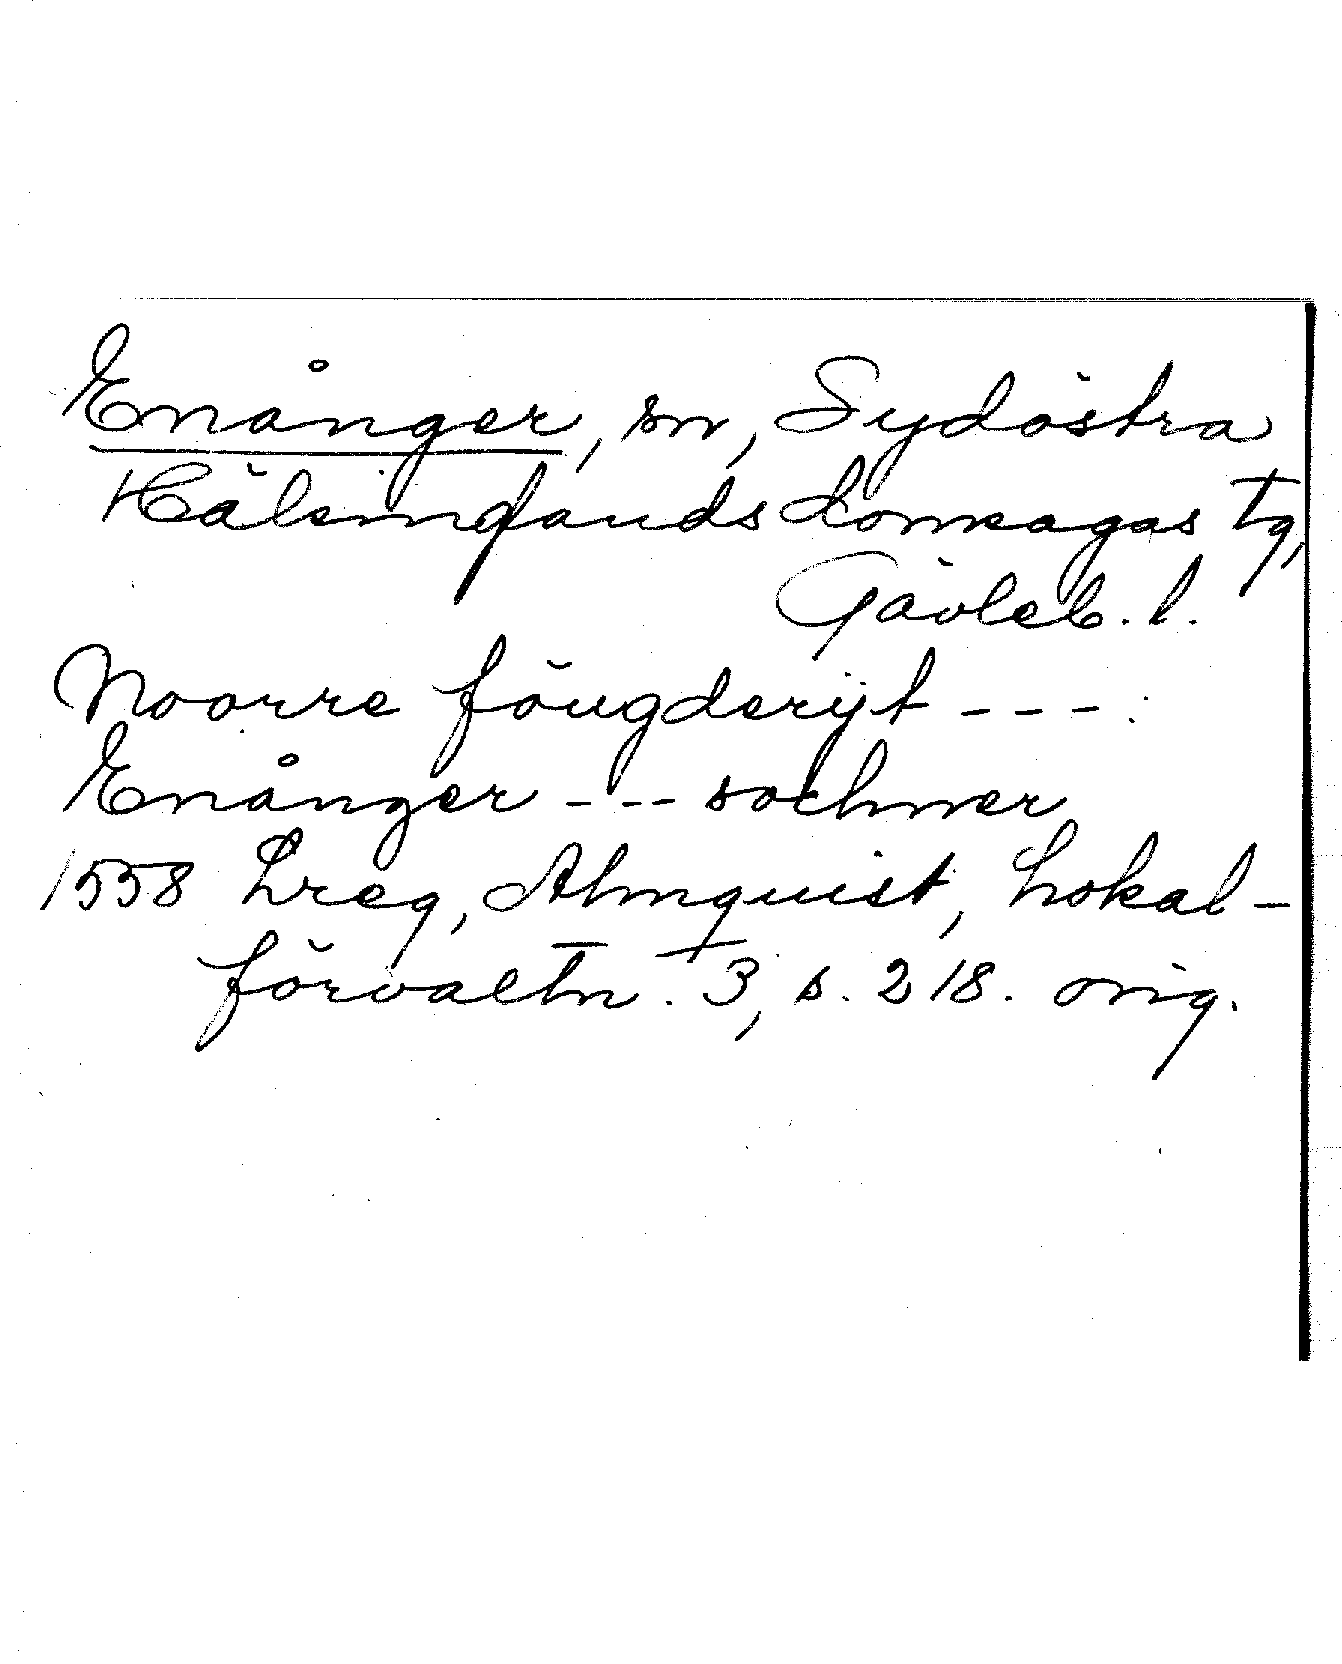 Enånger, sn, Sydöstra
Hälsinglands domsagas tg,
Gävleb. l.
Noorre föugderijt ---.
Enånger --- sochner
1558 Lreg, Almquist, Lokal-
förvaltn. 3, s. 218. orig.